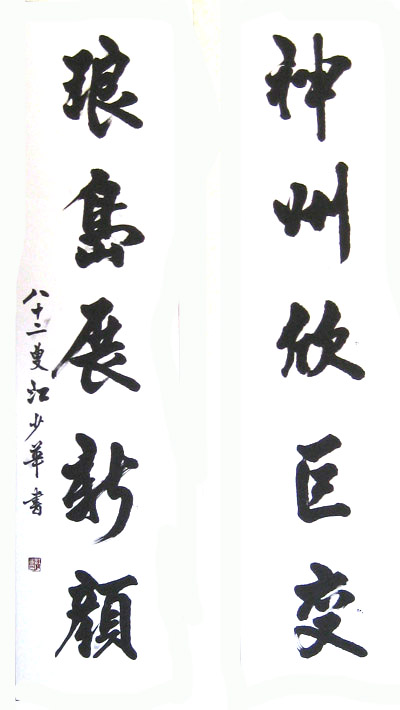 神州欣巨变
琅岛展新颜
八十二叟江少华书